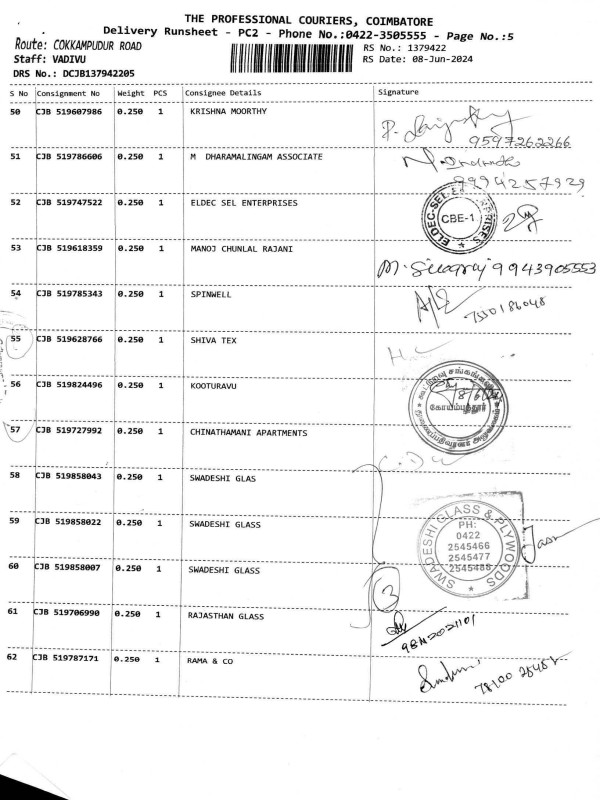 THE PROFESSIONAL COURIERS, COIMBATORE
Delivery Runsheet - PC2 - Phone No.:0422-3505555 - Page No.:5
Route: COKKAMPUDUR ROAD
RS No.: 1379422
Staff: VADIVU
RS Date: 08-Jun-2024
DRS No.: DCJB137942205
S No Consignment No Weight PCS Consignee Details Signature
50 CJB 519607986 0.250 1 KRISHNA MOORTHY
9597262266
51 CJB 519786606 0.250 1 M DHARAMALINGAM ASSOCIATE
9994257929
52 CJB 519747522 0.250 1 ELDEC SEL ENTERPRISES
ELDEC-SEL ENTERPRISES CBE-1
53 CJB 519618359 0.250 1 MANOJ CHUNLAL RAJANI
9943905553
54 CJB 519785343 0.250 1 SPINWELL
7550186048
55 CJB 519628766 0.250 1 SHIVA TEX
56 CJB 519824496 0.250 1 KOOTURAVU
கோயம்புத்தூர்
57 CJB 519727992 0.250 1 CHINATHAMANI APARTMENTS
58 CJB 519858043 0.250 1 SWADESHI GLAS
59 CJB 519858022 0.250 1 SWADESHI GLASS
SWADESHI GLASS & PLYWOODS
PH:
0422
2545466
2545477
2545488
60 CJB 519858007 0.250 1 SWADESHI GLASS
3
61 CJB 519706990 0.250 1 RAJASTHAN GLASS
62 CJB 519787171 0.250 1 RAMA & CO